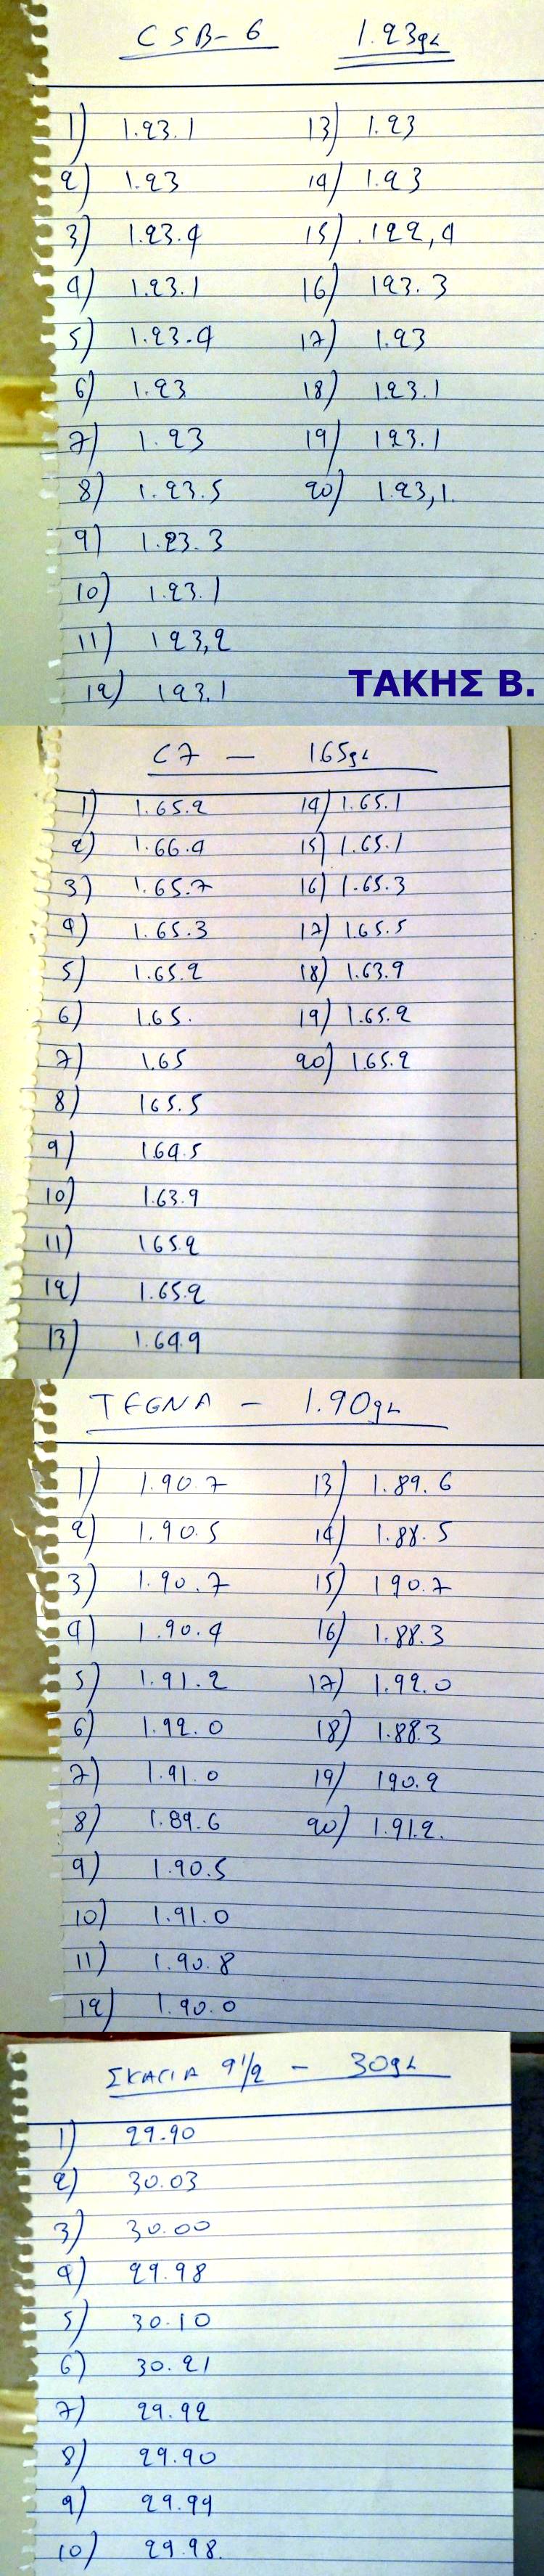 CSB-6 1.23gr
1) 1.23.1
2) 1.23
3) 1.23.4
4) 1.23.1
5) 1.23.4
6) 1.23
7) 1.23
8) 1.23.5
9) 1.23.3
10) 1.23.1
11) 123,2
12) 123.1
13) 1.23
14) 1.23
15) .122,4
16) 123.3
17) 1.23
18) 1.23.1
19) 123.1
20) 1.23,1.
ΤΑΚΗΣ Β.
C7 — 165gr
1) 1.65.2
2) 1.66.4
3) 1.65.7
4) 1.65.3
5) 1.65.2
6) 1.65.
7) 1.65
8) 165.5
9) 164.5
10) 1.63.9
11) 165.2
12) 1.65.2
13) 1.64.9
14) 1.65.1
15) 1.65.1
16) 1.65.3
17) 1.65.5
18) 1.63.9
19) 1.65.2
20) 165.2
TEGNA — 1.90gr
1) 1.90.7
2) 1.90.5
3) 1.90.7
4) 1.90.4
5) 1.91.2
6) 1.92.0
7) 1.91.0
8) 1.89.6
9) 1.90.5
10) 1.91.0
11) 1.90.8
12) 1.90.0
13) 1.89.6
14) 1.88.5
15) 190.7
16) 1.88.3
17) 1.92.0
18) 1.88.3
19) 190.2
20) 1.91.2.
ΣΚΑΓΙΑ 9 1/2 — 30gr
1) 29.90
2) 30.03
3) 30.00
4) 29.98
5) 30.10
6) 30.21
7) 29.92
8) 29.90
9) 29.94
10) 29.98.